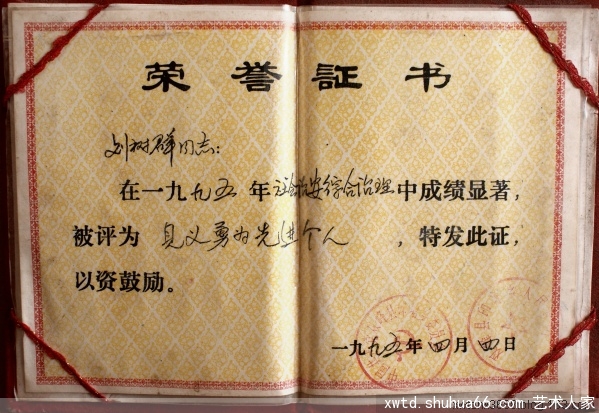 荣誉証书
刘树群同志:
在一九九五年社会治安综合治理中成绩显著,
被评为 见义勇为先进个人 ,特发此证,
以资鼓励。
一九九五年四月四日
xwtd.shuhua66.com/艺术人家